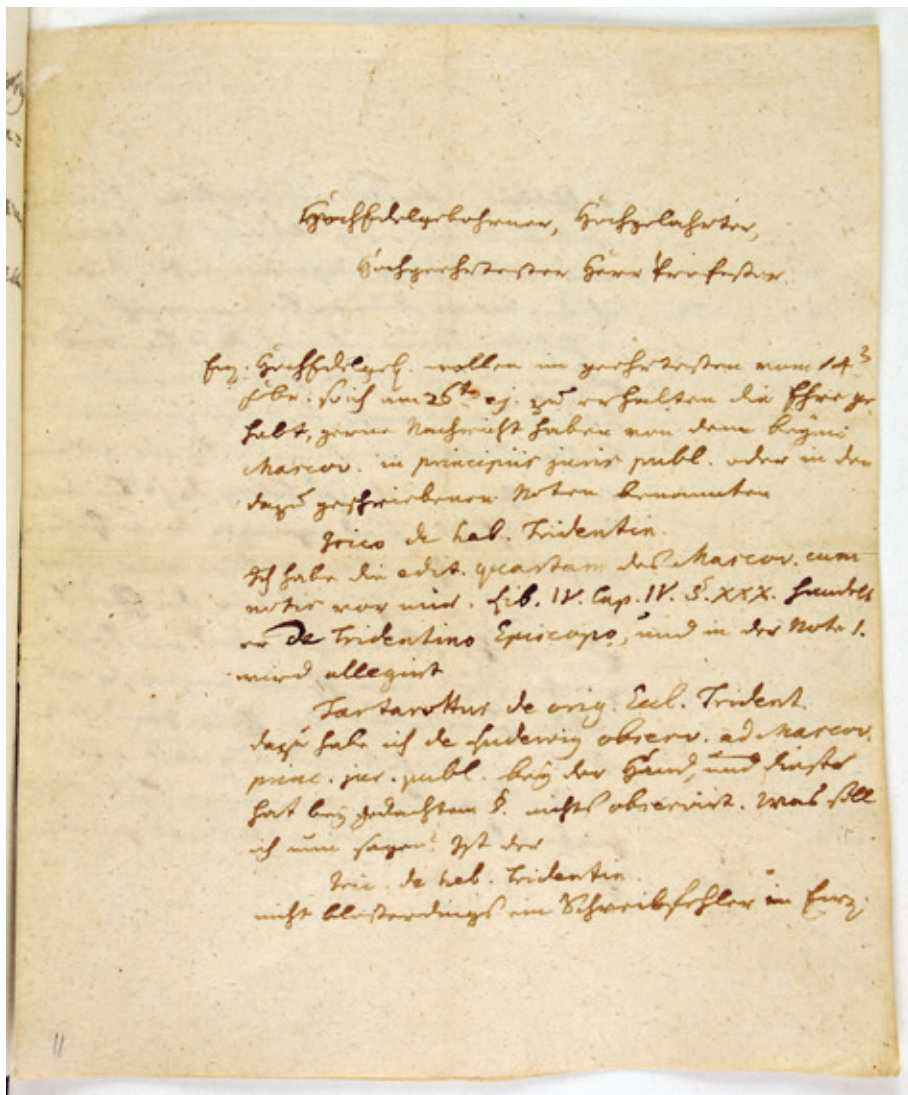 HochEdelgebohrner, Hochgelahrter,
Hochgeehrtester Herr Professor
Ew. HochEdelgeb. wollen im geehrtesten vom 14
so ich am 26ten ej. zu erhalten die Ehre ge
habt, gerne Nachricht haben von dem beym
Mascov. in principiis juris publ. oder in den
dazu geschriebenen Noten benannten
de Tridentin.
Ich habe die edit. quartam des Mascov. cum
notis vor mir. Lib. IV. Cap. IV. §. XXX. handelt
er de Tridentino Episcopo, und in der Note 1.
wird allegirt
Tartarottus de orig. Eccl. Trident.
dazu habe ich de Ludewig observ. ad Mascov.
princ. jur. publ. bey der Hand, und dieser
hat bey gedachtem §. nichts observirt. Was soll
ich nun sagen? Ist der
de Tridentin.
nicht blosterdings ein Schreibfehler in Ew.
11